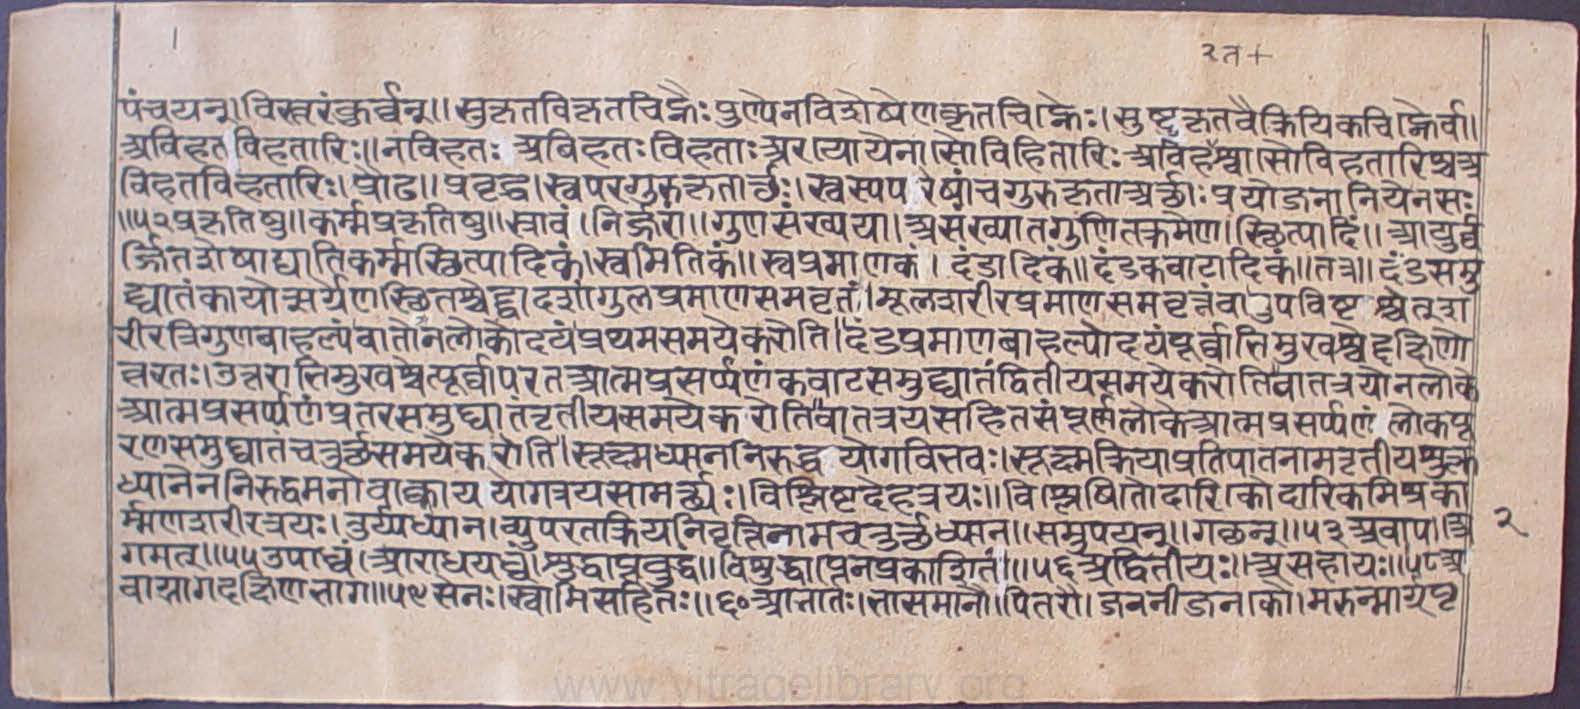 २त+
पंचयन्।विस्तरंकुर्व्वन्॥सुकृतविकृतचिह्नैःपुण्येनविशेषेणकृतचिह्नैः।सुष्टुकृतवैक्रियिकचिह्नैर्वा।
अविहतविहतारिः॥नविहतः अविहतःविहताःअरायोयेना।सोविहितारिःअविहश्चासोविहतारिश्चअ
विहतविहतारिः।प्रौढ॥प्रवृद्ध।स्वपरगुरुकृतार्च्छः।स्वस्पपरेषांचगुरुकृताअर्च्छाःप्रयोजनानियेनसः
॥५२प्रकृतिषु॥कर्म्मप्रकृतिषु॥स्रावं।निर्ज्जरा॥गुणसंख्यया।असंख्यातगुणितक्रमेण।स्छित्यादिं॥आयुर्व्व
र्ज्जितशेषाघातिकर्म्मस्छित्यादिकं।स्वमितिकं॥स्वप्रमाणकं।दंडादिकं॥दंडकवाटादिकं॥तत्र॥दंडसमु
द्घातंकायोत्सर्गेणस्छितश्चेद्द्वादशांगुलप्रमाणसमवृतं।मूलशरीरप्रमाणसमवृत्तंवाउपविष्टश्चेत्शा
रीरत्रिगुणबाहल्यंवातोनलोकोदयंप्रथमसमयेकरोति।दंडप्रमाणबाहल्योदयंपूर्व्वाभिमुखश्चेद्दक्षिणो
त्तरतः।उत्तराभिमुखश्चेत्पूर्वापरतआत्मप्रसर्प्पणंकवाटसमुद्घातंद्वितीयसमयेकरोतिवातत्रयोनलोके
आत्मप्रसर्प्पणंप्रतरसमुघातंतृतीयसमयेकरोतिवातत्रयसहितसंपूर्णलोकेआत्मप्रसर्प्पणंलोकपू
रणसमुघातंचतुर्च्छसमयेकरोति।सूक्ष्मध्याननिरुद्धयोगवित्तवः।सूक्ष्मक्रियाप्रतिपातनामतृतीयशुक्ल
ध्यानेननिरुद्धमनोवाक्काययोगत्रयसामर्च्छ्यः।विश्लिष्टदेहत्रयः॥विश्लेषितोदारिकोदारिकमिश्रका
र्म्मणशरीरत्रयः।तुर्य्यध्यान।व्युपरतक्रियनिवृत्तिनामचतुर्च्छध्यान॥समुपयन्॥गछन्॥५३अवाप।अ
गमत्॥५५उपाध्वं।आराधयध्वं।शुद्धाप्रबुद्ध॥विशुद्धात्मनप्रकाशितं॥५६अद्वितीयः।असहायः॥५८अ
वाग्भागदक्षिणभाग॥५९सेनः।स्वामिसहितः॥६०आभातः।भासमानौ।पितरौ।जननीजनकौ।मरुन्मार्गपृ
२
www.vitragelibrary.org